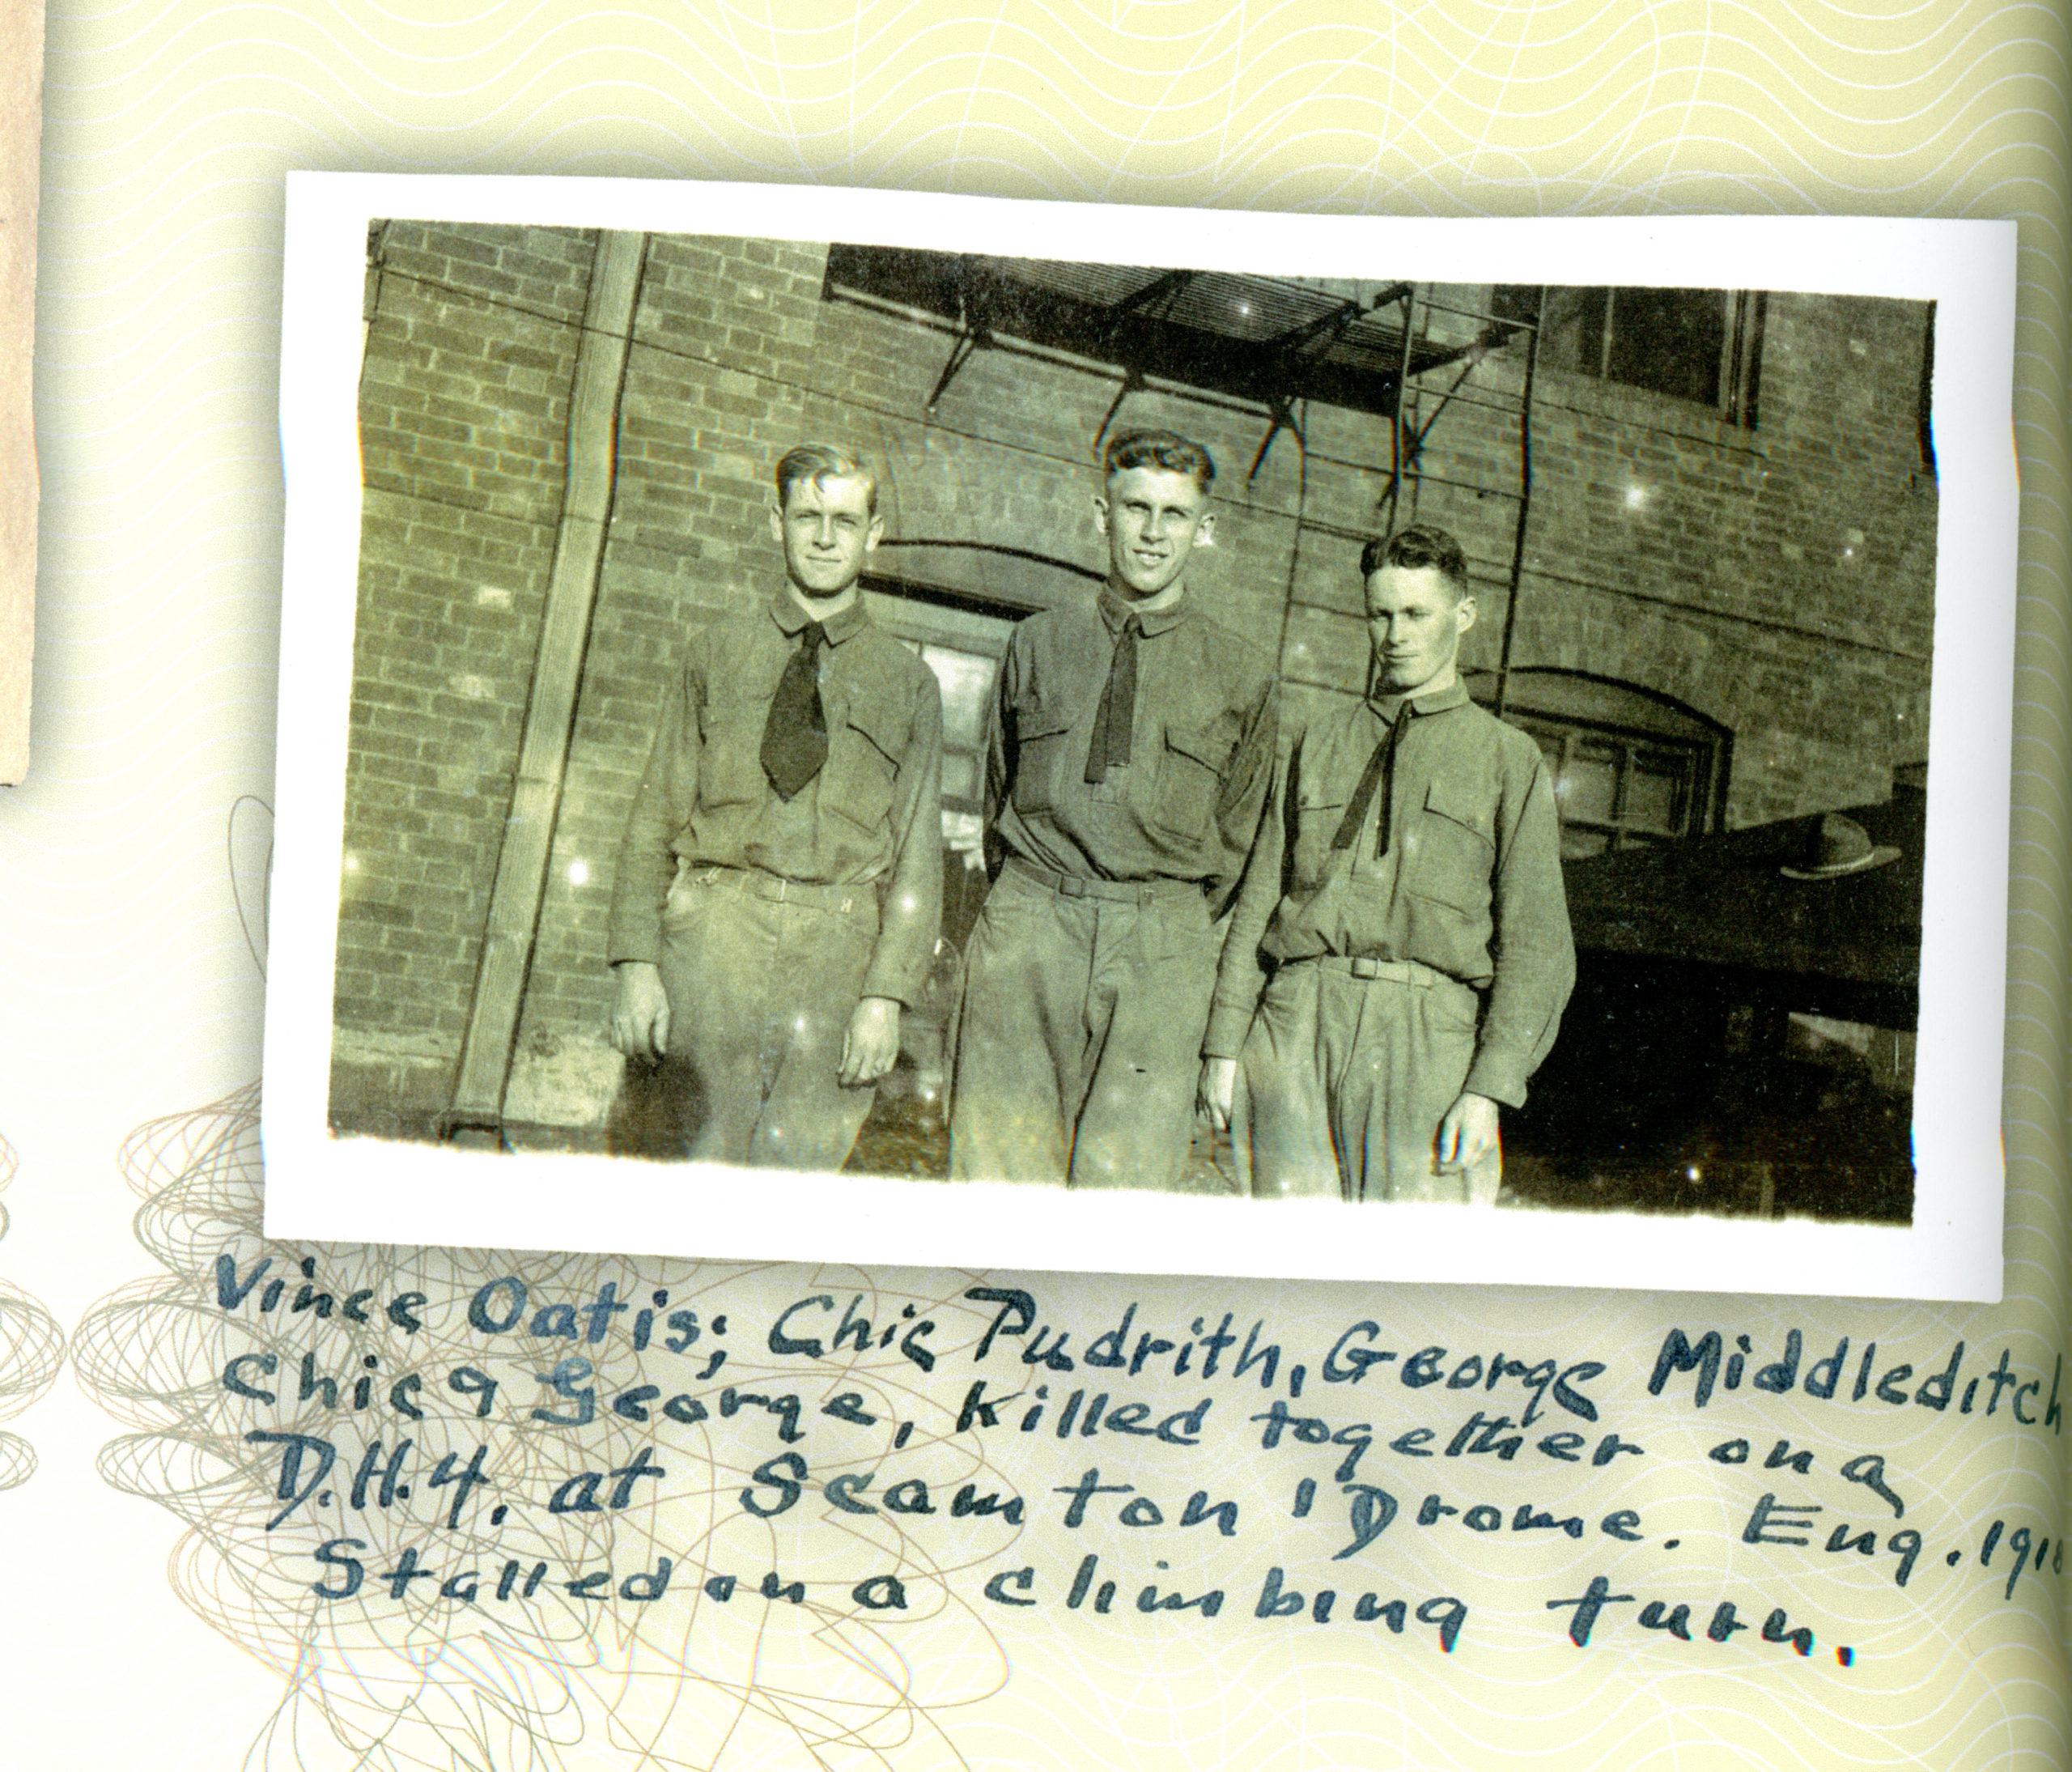 Vince Oatis; Chic Pudrith, George Middleditch
Chic & George, killed together on a
D.H.4. at Scamton 'Drome. Eng. 1918
Stalled on a climbing turn.